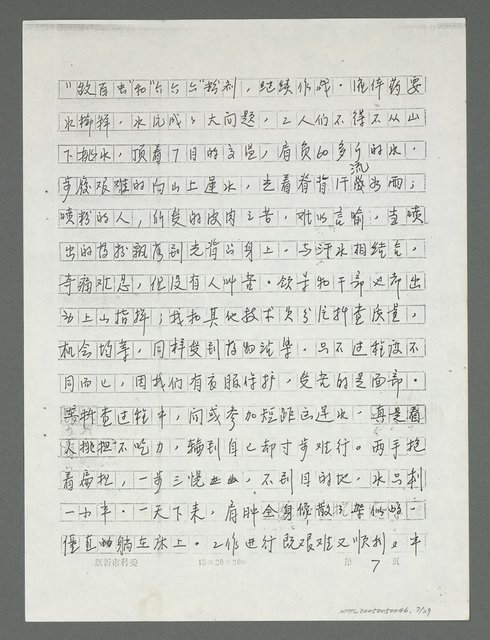 "敌百虫"和"六六六"粉剂，继续作战。液体药要
水掺拌，水就成了大问题，工人们不得不从山
下挑水，顶着7月的高温，肩负60多斤的水，
步履艰难的向山上运水，光着脊背汗流如雨；
喷粉的人，所受的皮肉之苦，难以言喻，当喷
出的药粉飘落到光背的身上，与汗水相结合，
奇痛难忍，但没有人叫苦。领导和干部也都出
动上山指挥；我和其他技术员分片抖查质量，
机会均等，同样受到药物沾染。只不过程度不
同而已，因我们有衣服保护，受害的是面部。
抖查过程中，间或参加短距离运水，真是看
人挑担不吃力，轮到自己却寸步难行。两手抱
着扁担，一步三慌，不到目的地，水只剩
一小半。一天下来，肩肿全身像散了架似的
僵直的躺在床上。工作进行既艰难又顺利。半
新沂市科委 15×20=300 第 7 页
NMTL20050050046, 7/29